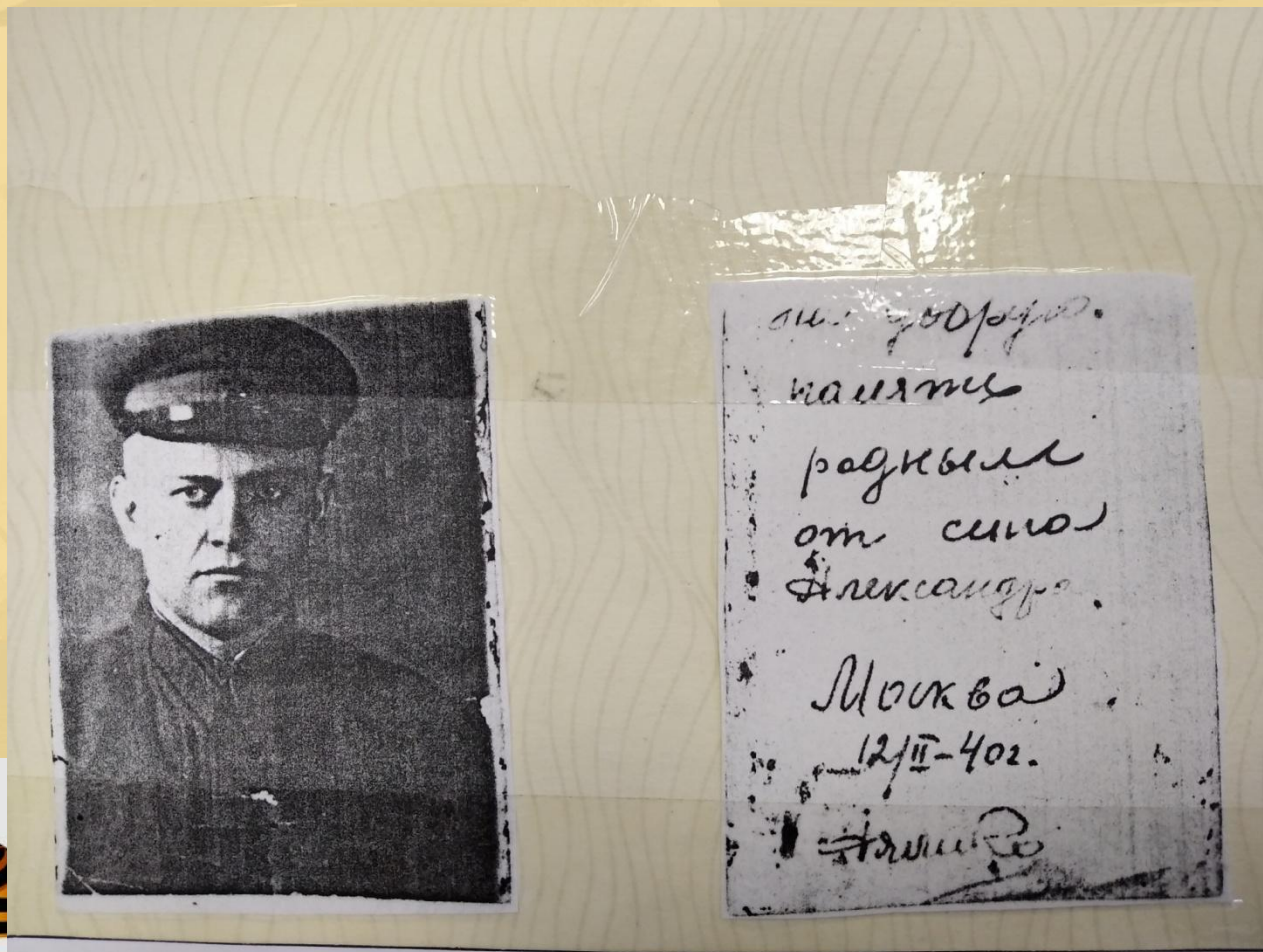 добрую.
памяти
родным
от сина
Александра.
Москва.
12/II-40г.